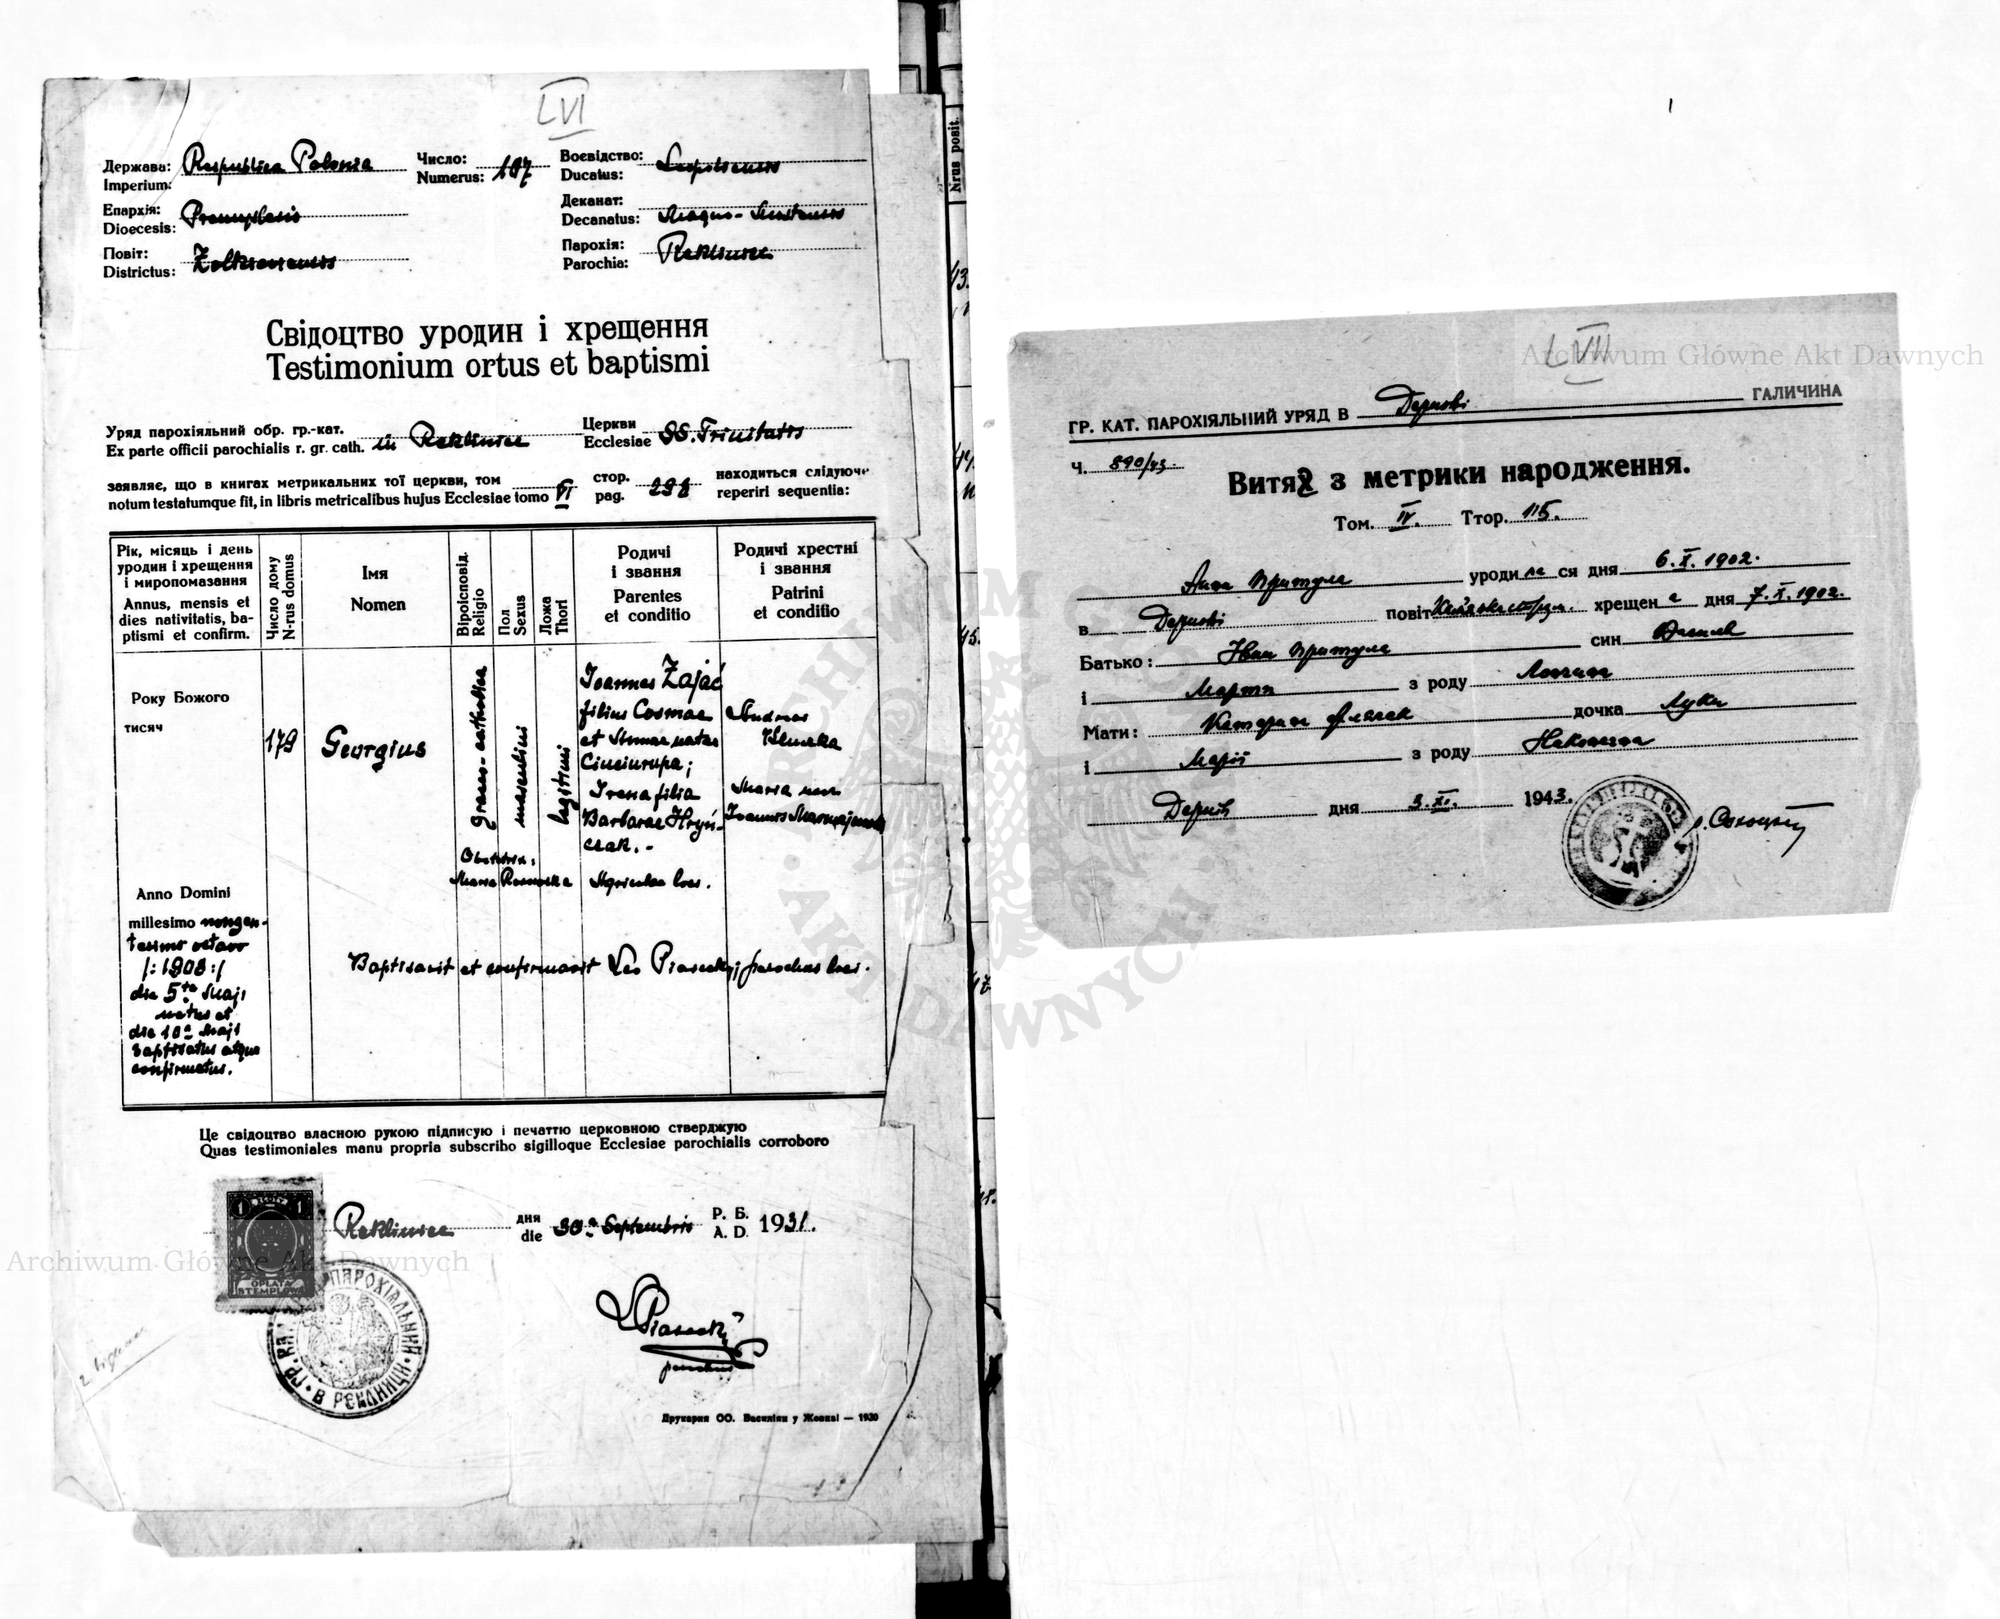 LVI
Держава: Respublica Polonia Число: 107 Воєвідство: Leopoliensis
Imperium: Numerus: Ducatus:
Епархія: Premysliensis Деканат:
Dioecesis: Decanatus: Magno-Mostensis
Повіт: Zolkieviensis Парохія: Rekliniec
Districtus: Parochia:
Свідоцтво уродин і хрещення
Testimonium ortus et baptismi
Уряд парохіяльний обр. гр.-кат. Церкви
Ex parte officii parochialis r. gr. cath. in Rekliniec Ecclesiae SS. Trinitatis
заявляє, що в книгах метрикальних тої церкви, том стор. находиться слідуюче
notum testatumque fit, in libris metricalibus hujus Ecclesiae tomo VI pag. 298 reperiri sequentia:
Рік, місяць і день
уродин і хрещення
і миропомазання
Annus, mensis et
dies nativitatis, ba-
ptismi et confirm.
Число дому
N-rus domus
Імя
Nomen
Віроісповід.
Religio
Пол
Sexus
Ложа
Thori
Родичі
і звання
Parentes
et conditio
Родичі хрестні
і звання
Patrini
et conditio
Року Божого
тисяч
Anno Domini
millesimo nongen-
tesimo octavo
/:1908:/
die 5ta Maji
natus et
die 10a Maji
baptisatus atque
confirmatus.
179
Georgius
graeco-catholica
masculini
legitimi
Obstetrix:
Maria
Joannes Zając
filius Cosmae
et Annae natae
Ciuciurupa;
Irena filia
Barbarae Hryń-
czak.-
Agricolae loci.
Andreas
Maria uxor
Joannis
Baptisavit et confirmavit Leo Piasecki, parochus loci.
Це свідоцтво власною рукою підписую і печаттю церковною стверджую
Quas testimoniales manu propria subscribo sigilloque Ecclesiae parochialis corroboro
1 ZŁOTY 1
OPŁATA
STEMPLOWA
Rekliniec дня 30a Septembris Р. Б. 1931.
die A. D.
L Piasecki
parochus
ПАРОХІЯЛЬНИЙ
Друкарня ОО. Василіян у Жовкві — 1930
Nrus posit.
LVII
ГР. КАТ. ПАРОХІЯЛЬНИЙ УРЯД В Дернові ГАЛИЧИНА
Ч. 890/43.
Витяг з метрики народження.
Том. IV. Ттор. 115.
Анна Притула уродилася дня 6.X.1902.
в Дернові повіт хрещена дня 7.X.1902.
Батько: Іван Притула син Василя
і Марти з роду
Мати: Катерина дочка Луки
і Марії з роду
Дернів дня 3.XI. 1943.
Archiwum Główne Akt Dawnych
Archiwum Główne Akt Dawnych
ARCHIWUM GŁÓWNE AKT DAWNYCH